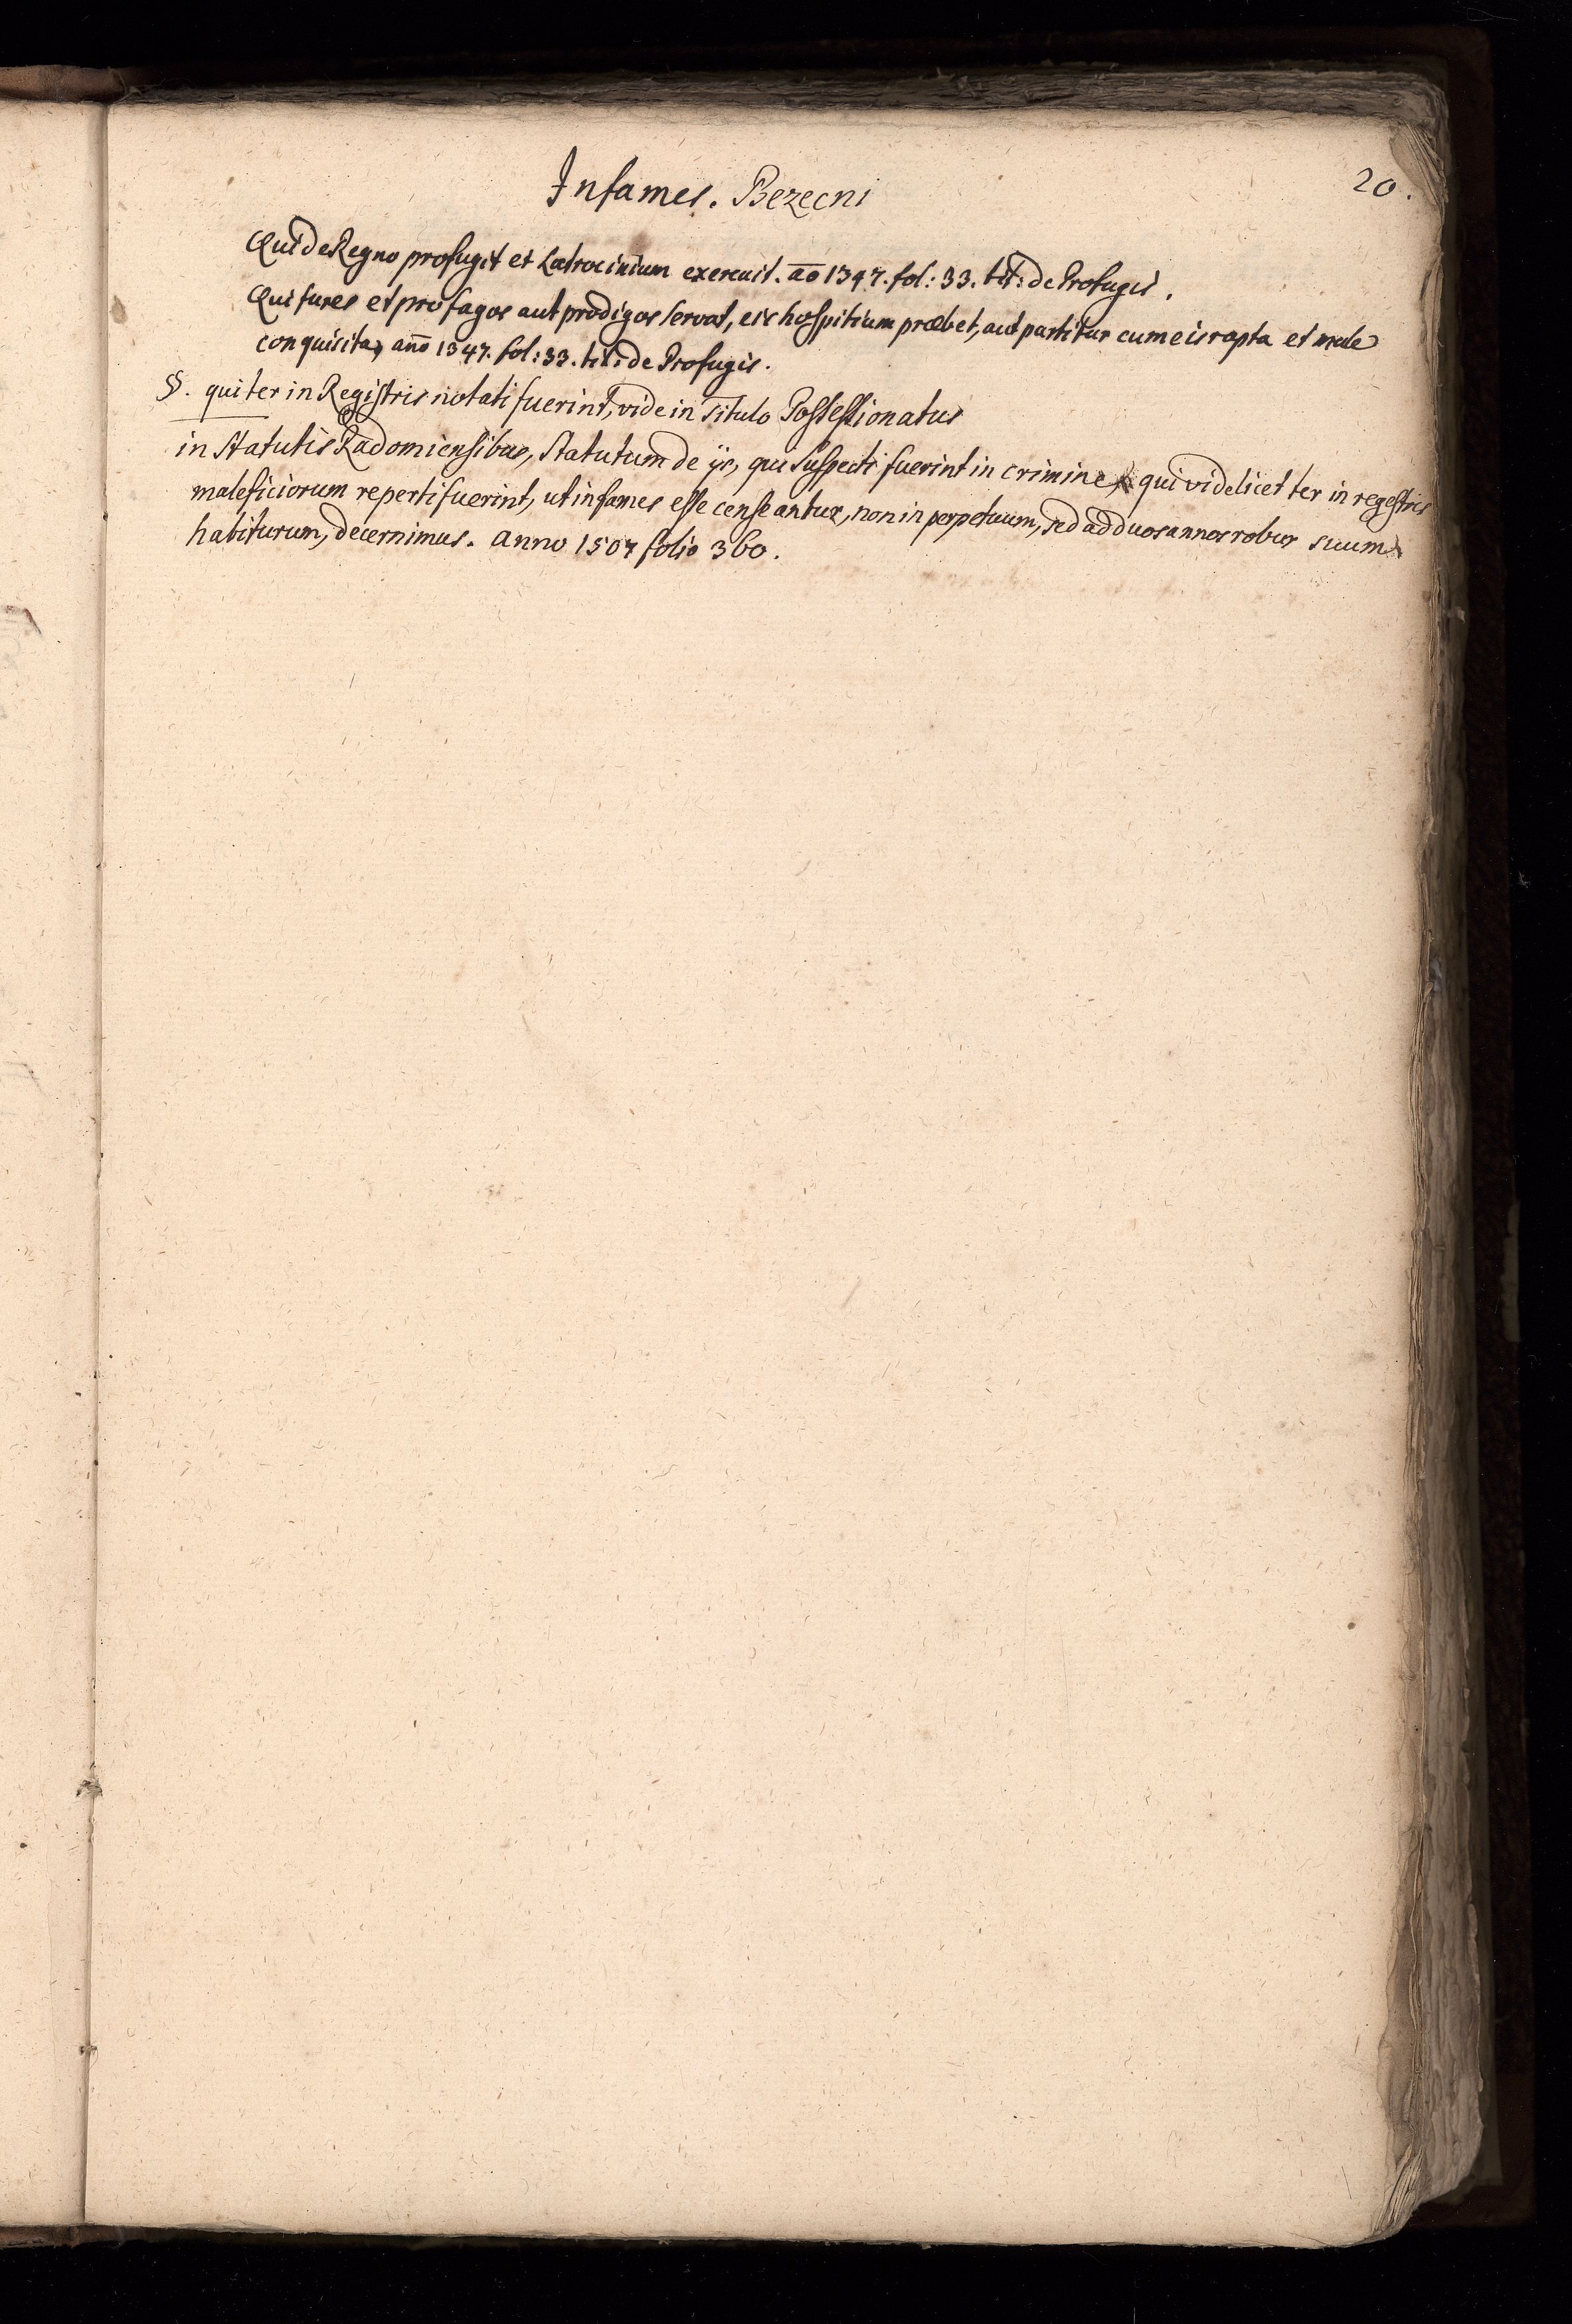 20.
Infames. Bezecni
Qui de Regno profugit et Latrocinium exercuit. ao 1347. fol: 33. tit: de Profugis.
Qui fures et profugos aut prodigos servat, eis hospitium præbet, aut partitur cum eis rapta et male
conquisita, año 1347. fol: 33. tit: de Profugis.
§. qui ter in Registris notati fuerint, vide in titulo Possessionatus
in Statutis Radomiensibus, Statutum de ijs, qui suspecti fuerint in crimine, qui videlicet ter in regestris
maleficiorum reperti fuerint, ut infames esse censeantur, non in perpetuum, sed ad duos annos robur suum
habiturum, decernimus. anno 1507 folio 360.